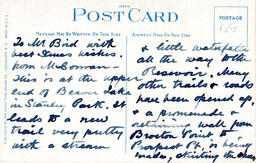 POST CARD
MESSAGE MAY BE WRITTEN ON THIS SIDE
ADDRESS ONLY ON THIS SIDE
POSTAGE
To Mr Bird with
best Xmas wishes.
from McGowan —
This is at the upper
end of Beaver Lake
in Stanley Park. It
leads to a new
trail very pretty
with a stream
& little waterfalls
all the way to the
Reservoir. Many
other trails & roads
have been opened up,
& a promenade &
retaining wall from
Brockton Point to
Prospect Pt. is being
made, skirting the shore